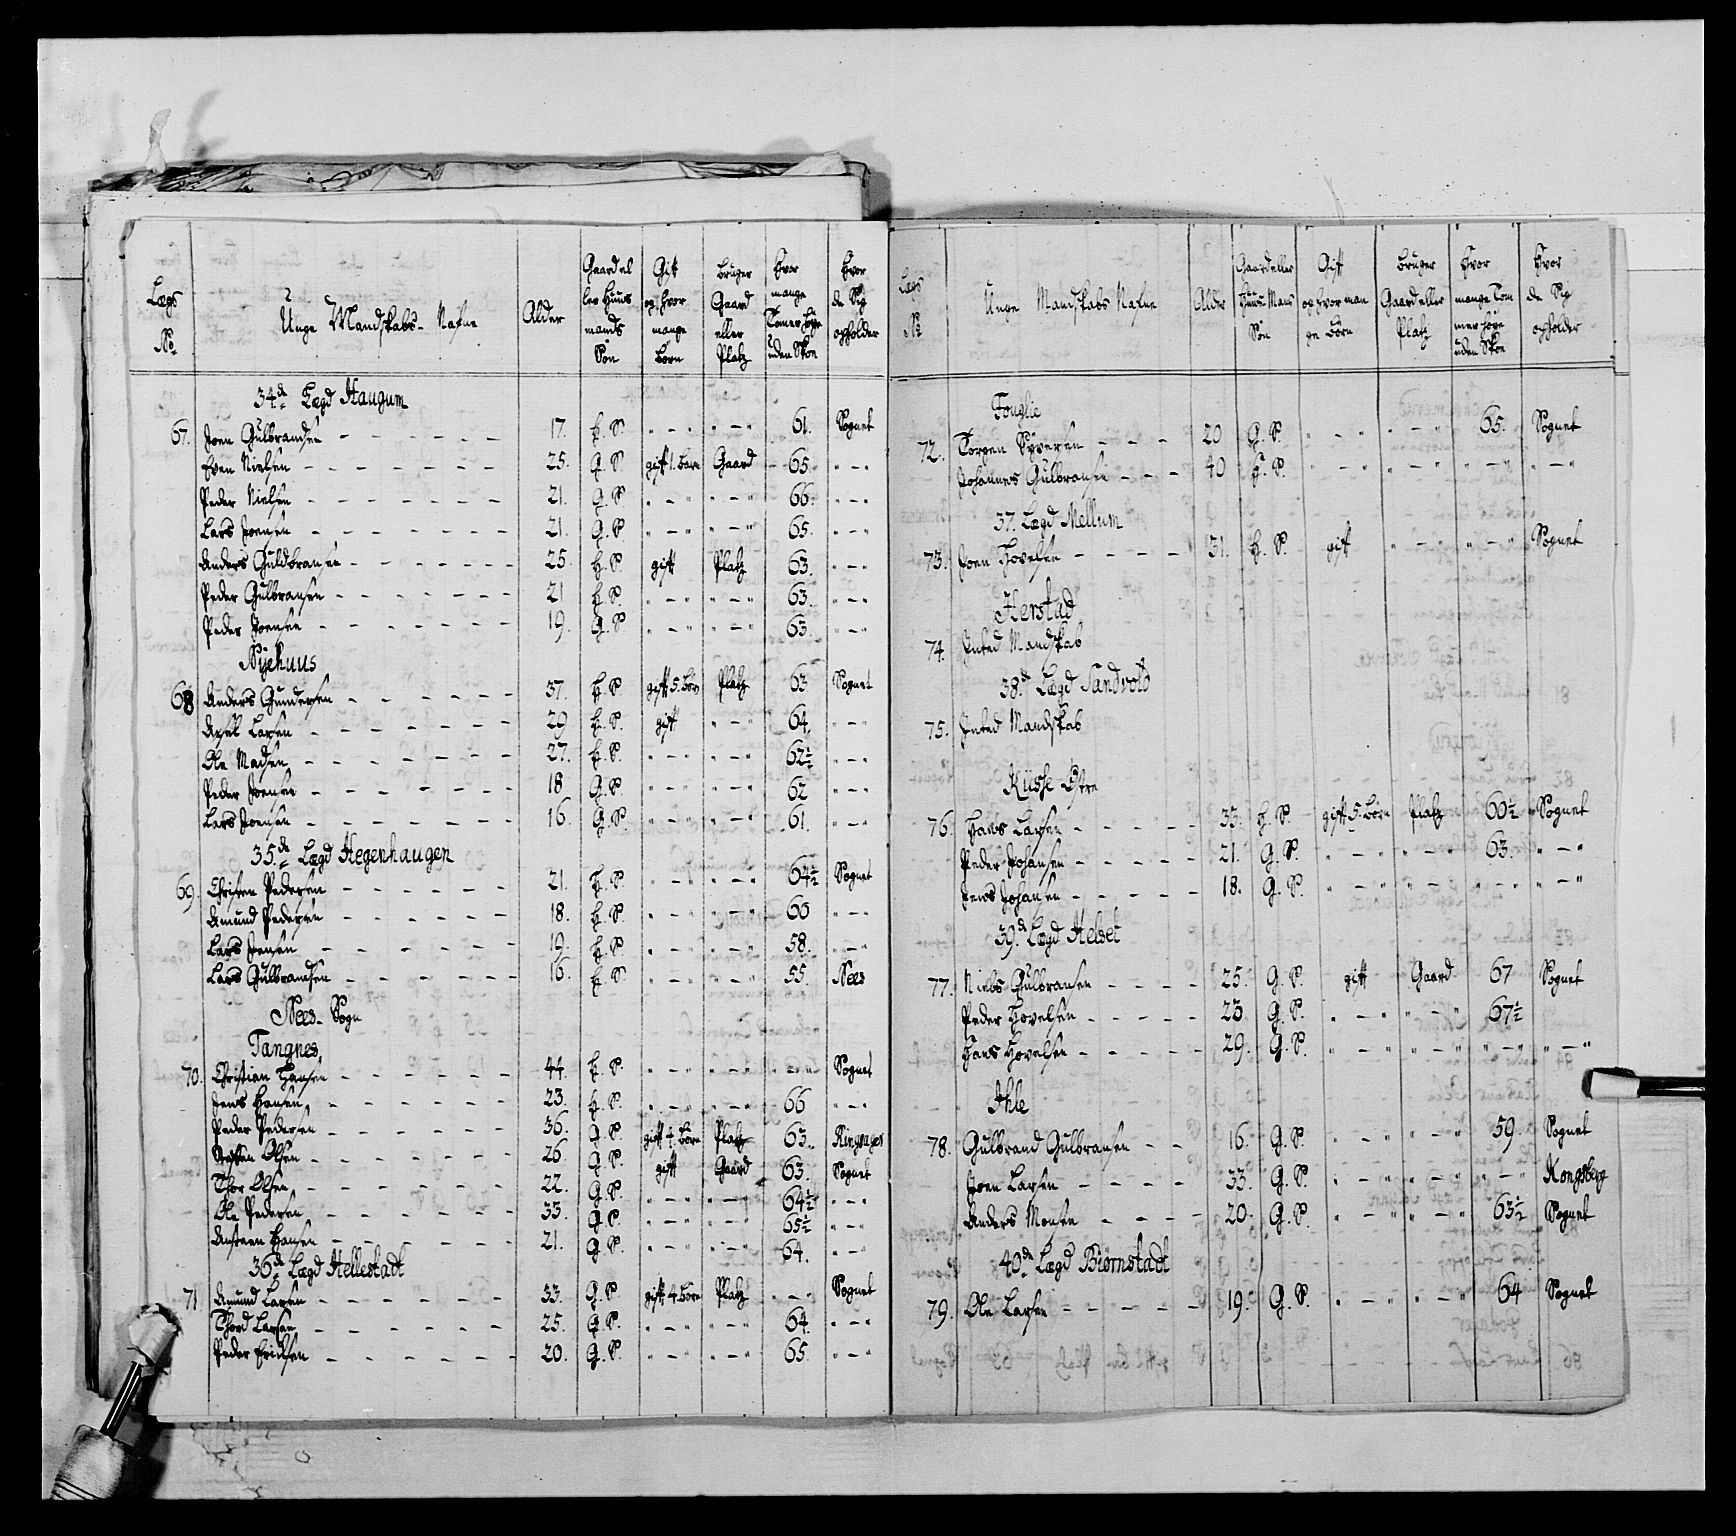 Lægs No | Unge Mandskabs Nafne | Alder | Gaard eller Huusmands Søn | Gift og hvor mange Børn | bruger Gaard eller Platz | Hvor mange Tomer høye uden Skoe | Hvor de Sig opholder
34de Lægd Haugum
67. Joen Gulbrandsen - - - 17. H. S. " - " " - " 61. Sognet
Even Nielsen - - - 25. G. S. gift 1. barn Gaard 65. " - "
Peder Nielsen - - - 21. G. S. " - " " - " 66. " - "
Lars Joensen - - - 21. G. S. " - " " - " 65. " - "
Anders Guldbransen - - - 25. H. S. gift Platz 63. " - "
Peder Gulbransen - - - 21 H. S. " - " " - " 63. " - "
Peder Joensen - - - 19. G. S. " - " " - " 63. " - "
Nyehuus
68 Anders Gundersen - - - 37. H. S. gift 5. Børn Platz 63 Sognet
Axsel Larsen - - - 29 H. S. gift " - " 64. " - "
Ole Madsen - - - 27. H. S. " - " " - " 62½ " - "
Peder Joensen - - - 18 G. S. " - " " - " 62 " - "
Lars Joensen - - - 16. G. S. " - " " - " 61. " - "
35de Lægd Hegenhaugen
69. Christen Pedersen - - - 21. H. S. " - " " - " 64½ Sognet
Amund Pedersen - - - 18. H. S. " - " " - " 60 " - "
Lars Jensen - - - 19. H. S. " - " " - " 58. " - "
Lars Gulbrandsen - - - 16. H. S. " - " " - " 55. Nees
Nees Sogn
Tangnes
70. Christian Hansen - - - 44. H. S. " - " " - " " - " Sognet
Jens Hansen - - - 23. H. S. " - " " - " 66 " - "
Peder Pedersen - - - 36. G. S. gift 4. børn Platz 63. Ringerige
Steffen Olsen - - - 26 G. S. gift Gaard 63. Sognet
Thor Olsen - - - 22. G. S. " - " " - " 64½ " - "
Ole Pedersen - - - 33. G. S. " - " " - " 65½ " - "
Austeen Hansen - - - 21. G. S. " - " " - " 64. " - "
36de Lægd Hellestadt
71 Amund Larsen - - - 33. G. S. gift 4. børn Platz " - " Sognet
Thord Larsen - - - 25. G. S. " - " " - " 64. " - "
Peder Ericksen - - - 20. G. S. " - " " - " 65. " - "
Lægs No | Unge Mandskabs Nafne | Alder | Gaard eller Huus Mans Søn | Gift og hvor mange børn | bruger Gaard eller Platz | Hvor mange Tommer høye uden Skoe | Hvor de Sig opholder
Fonglie
72. Torgen Syversen - - - 20 G. S. " - " " - " 65. Sognet
Johannes Gulbransen - - - 40 H. S. " - " " - " " - " " - "
37. Lægd Mellum
73. Joen Hovelsen - - - 31. H. S. gift " - " " - " Sognet
Herstad
74. Inted Mandskab
38de Lægd Sandvold
75. Inted Mandskab
Küsse Østre
76. Hans Larsen - - - 33. H. S. gift 5. Børn Platz 60½ Sognet
Peder Johansen - - - 21. G. S. " - " " - " 63. " - "
Jens Johansen - - - 18. G. S. " - " " - " " - " " - "
39de Lægd Helset
77. Niels Gulbransen - - - 25. G. S. gift Gaard 67 Sognet
Peder Hovelsen - - - 23 G. S. " - " " - " 67½
Hans Hovelsen - - - 29. G. S. " - " " - " " - " " - "
Ihle
78. Gulbrand Gulbransen - - 16. G. S. " - " " - " 59. Sognet
Joen Larsen - - - 33. G. S. " - " " - " " - " Kongsberg
Anders Monsen - - - 20. G. S. " - " " - " 63½ Sognet
40de Lægd Biørnstadt
79. Ole Larsen - - - 19. G. S. " - " " - " 64 Sognet